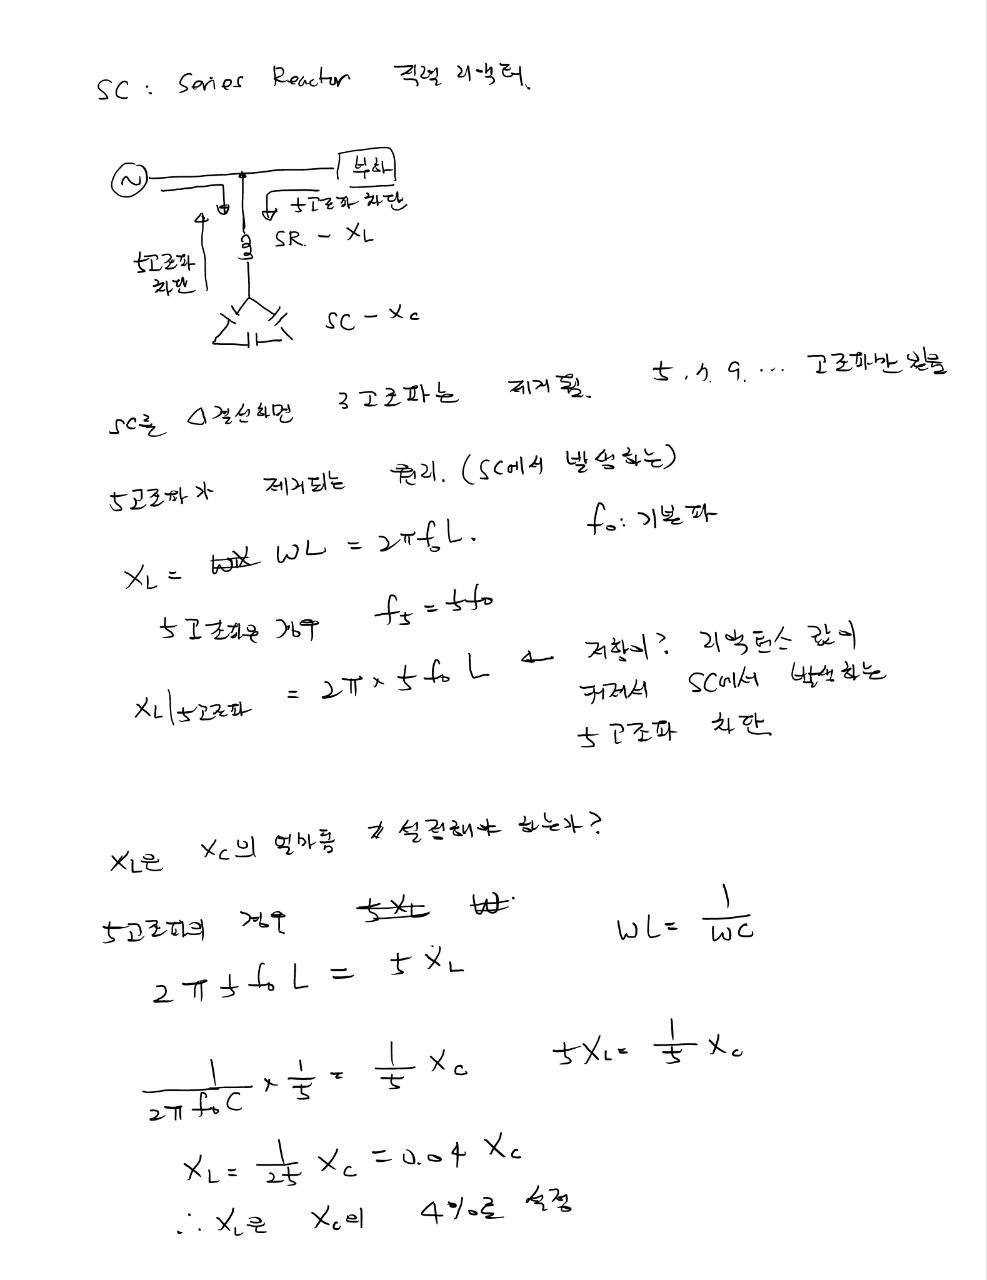 SC : Series Reactor 직렬 리액터.
~ 부하
5고조파 차단
SR. - XL
5고조파
차단
SC - Xc
SC를 △결선하면 3고조파는 제거됨. 5, 7, 9, ... 고조파만 있음
5고조파가 제거되는 원리. (SC에서 발생하는)
XL = WL = 2πf₀L. f₀: 기본파
5고조파는 경우 f₅ = 5f₀
XL|5고조파 = 2π × 5f₀ L ← 저항이? 리액턴스 값이
커져서 SC에서 발생하는
5고조파 차단
XL은 Xc의 얼마를 설정해야 하는가?
5고조파의 경우 WL = 1/WC
2π5f₀L = 5XL
1/(2πf₀C) × 1/5 = 1/5 Xc 5XL = 1/5 Xc
XL = 1/25 Xc = 0.04 Xc
∴ XL은 Xc의 4%로 설정